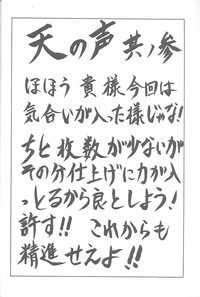 天の声 其ノ参
ほほう 貴様今回は
気合いが入った様じゃな!
ちと枚数が少ないが
その分仕上げに力が入
っとるから良としよう!
許す!! これからも
精進せえよ!!